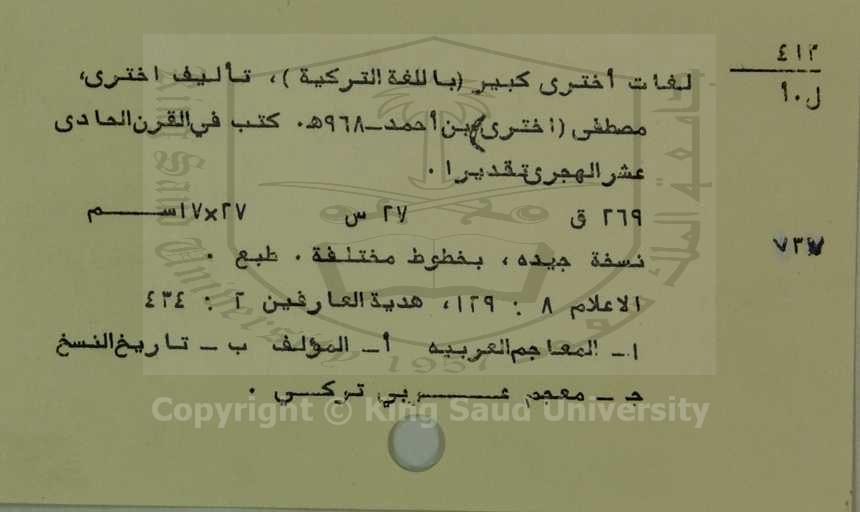 ٤١٣
ل.أ
لغات أخترى كبير (باللغة التركية )، تأليف اخترى،
مصطفى (اخترى) بن أحمد-٩٦٨هـ. كتب في القرن الحادى
عشر الهجرى تقديرا .
٢٦٩ ق ٢٧ س ٢٧×١٧ســـم
٧٣٧
نسخة جيده ، بخطوط مختلفة . طبع .
الاعلام ٨ : ١٢٩، هدية العارفين ٢ : ٤٣٤
١- المعاجم العربيه أ- المؤلف ب - تاريخ النسخ
جـ - معجم عـــربي تركـي .
Copyright © King Saud University
King Saud University
1957